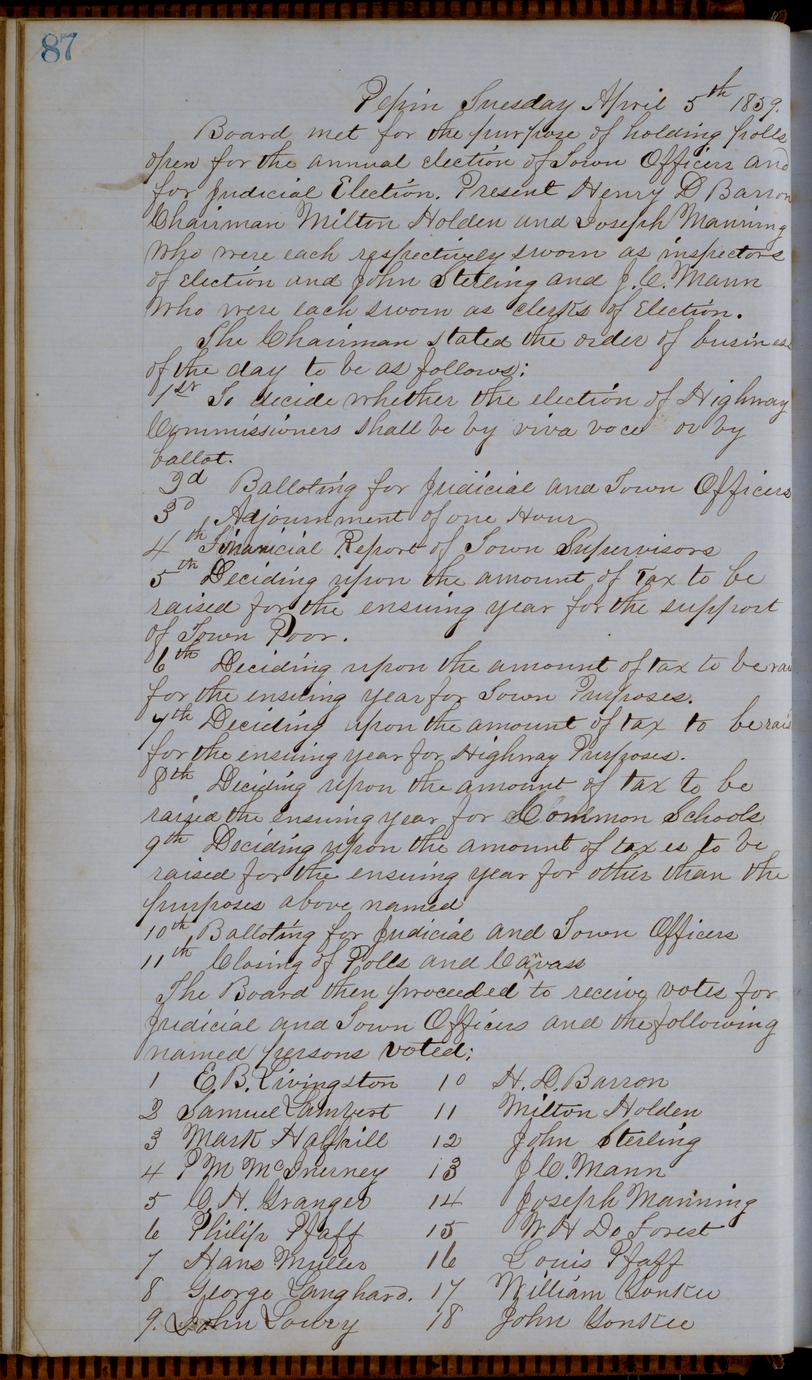 87
Pepin Tuesday April 5th 1859.
Board met for the purpose of holding polls
open for the annual election of Town Officers and
for Judicial Election. Present Henry D Barron
Chairman Milton Holden and Joseph Manning
Who were each respectively sworn as inspectors
of election and John Sterling and J. C. Mann
Who were each sworn as clerks of Election.
The Chairman stated the order of business
of the day to be as follows;
1st To decide whether the election of Highway
Commissioners shall be by viva voce or by
ballot.
2d Balloting for Judicial and Town Officers
3d Adjournment of one Hour
4th Financial Report of Town Supervisors
5th Deciding upon the amount of Tax to be
raised for the ensuing year for the support
of Town Poor.
6th Deciding upon the amount of tax to be rai
for the ensuing year for Town Purposes.
7th Deciding upon the amount of tax to be rais
for the ensuing year for Highway Purposes.
8th Deciding upon the amount of tax to be
raised the ensuing year for Common Schools
9th Deciding upon the amount of taxes to be
raised for the ensuing year for other than the
purposes above named
10th Balloting for Judicial and Town Officers
11th Closing of Polls and Canvass
The Board then proceeded to receive votes for
Judicial and Town Officers and the following
named persons voted;
1 E. B. Livingston 10 H. D. Barron
2 Samuel Lambert 11 Milton Holden
3 Mark Halfhill 12 John Sterling
4 P M McInerney 13 J. C. Mann
5 C. H. Granger 14 Joseph Manning
6 Philip Pfaff 15 W H De Forest
7 Hans Muller 16 Louis Pfaff
8 George Langhard. 17 William Yonkee
9. John Lowry 18 John Yonkee